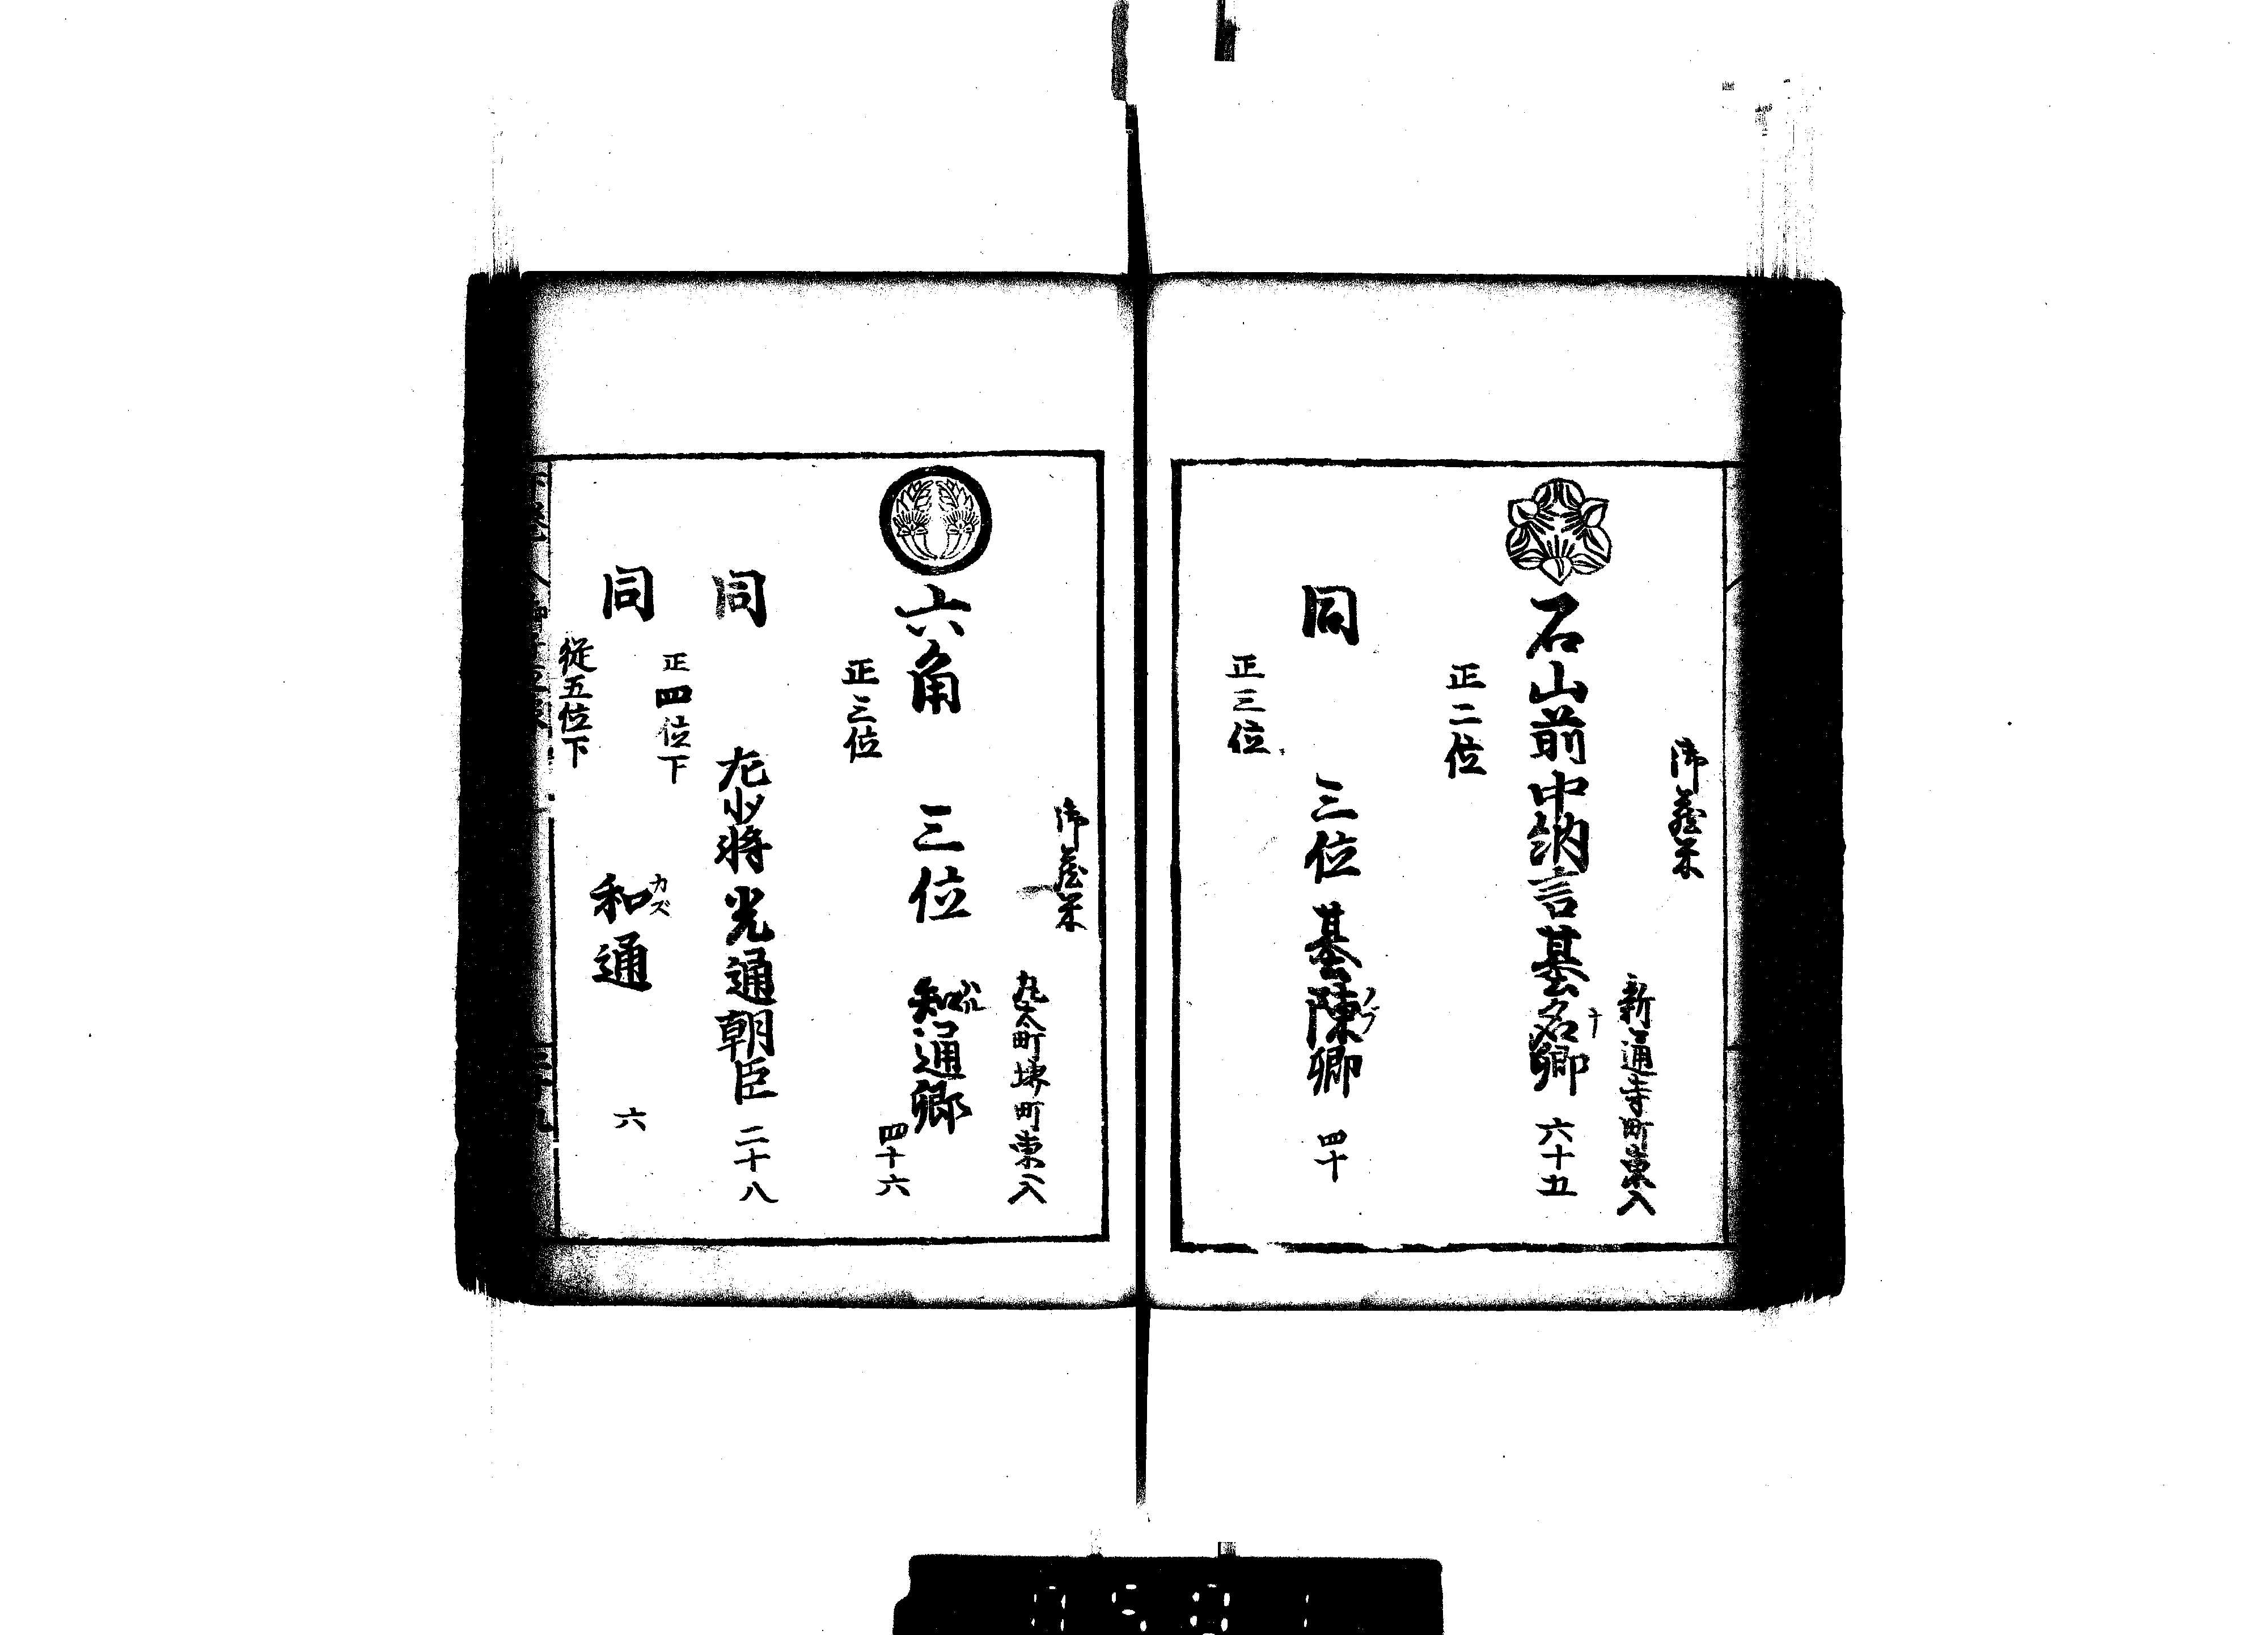 御蔵米
新通寺町東入
石山前中納言基名卿 六十五
ナ
正二位
同 三位基陳卿 四十
ノブ
正三位
御蔵米
丸太町堺町東入
六角 三位 和通卿 四十六
ハル
正三位
同 左少将光通朝臣 二十八
正四位下
同 和通 六
カズ
従五位下